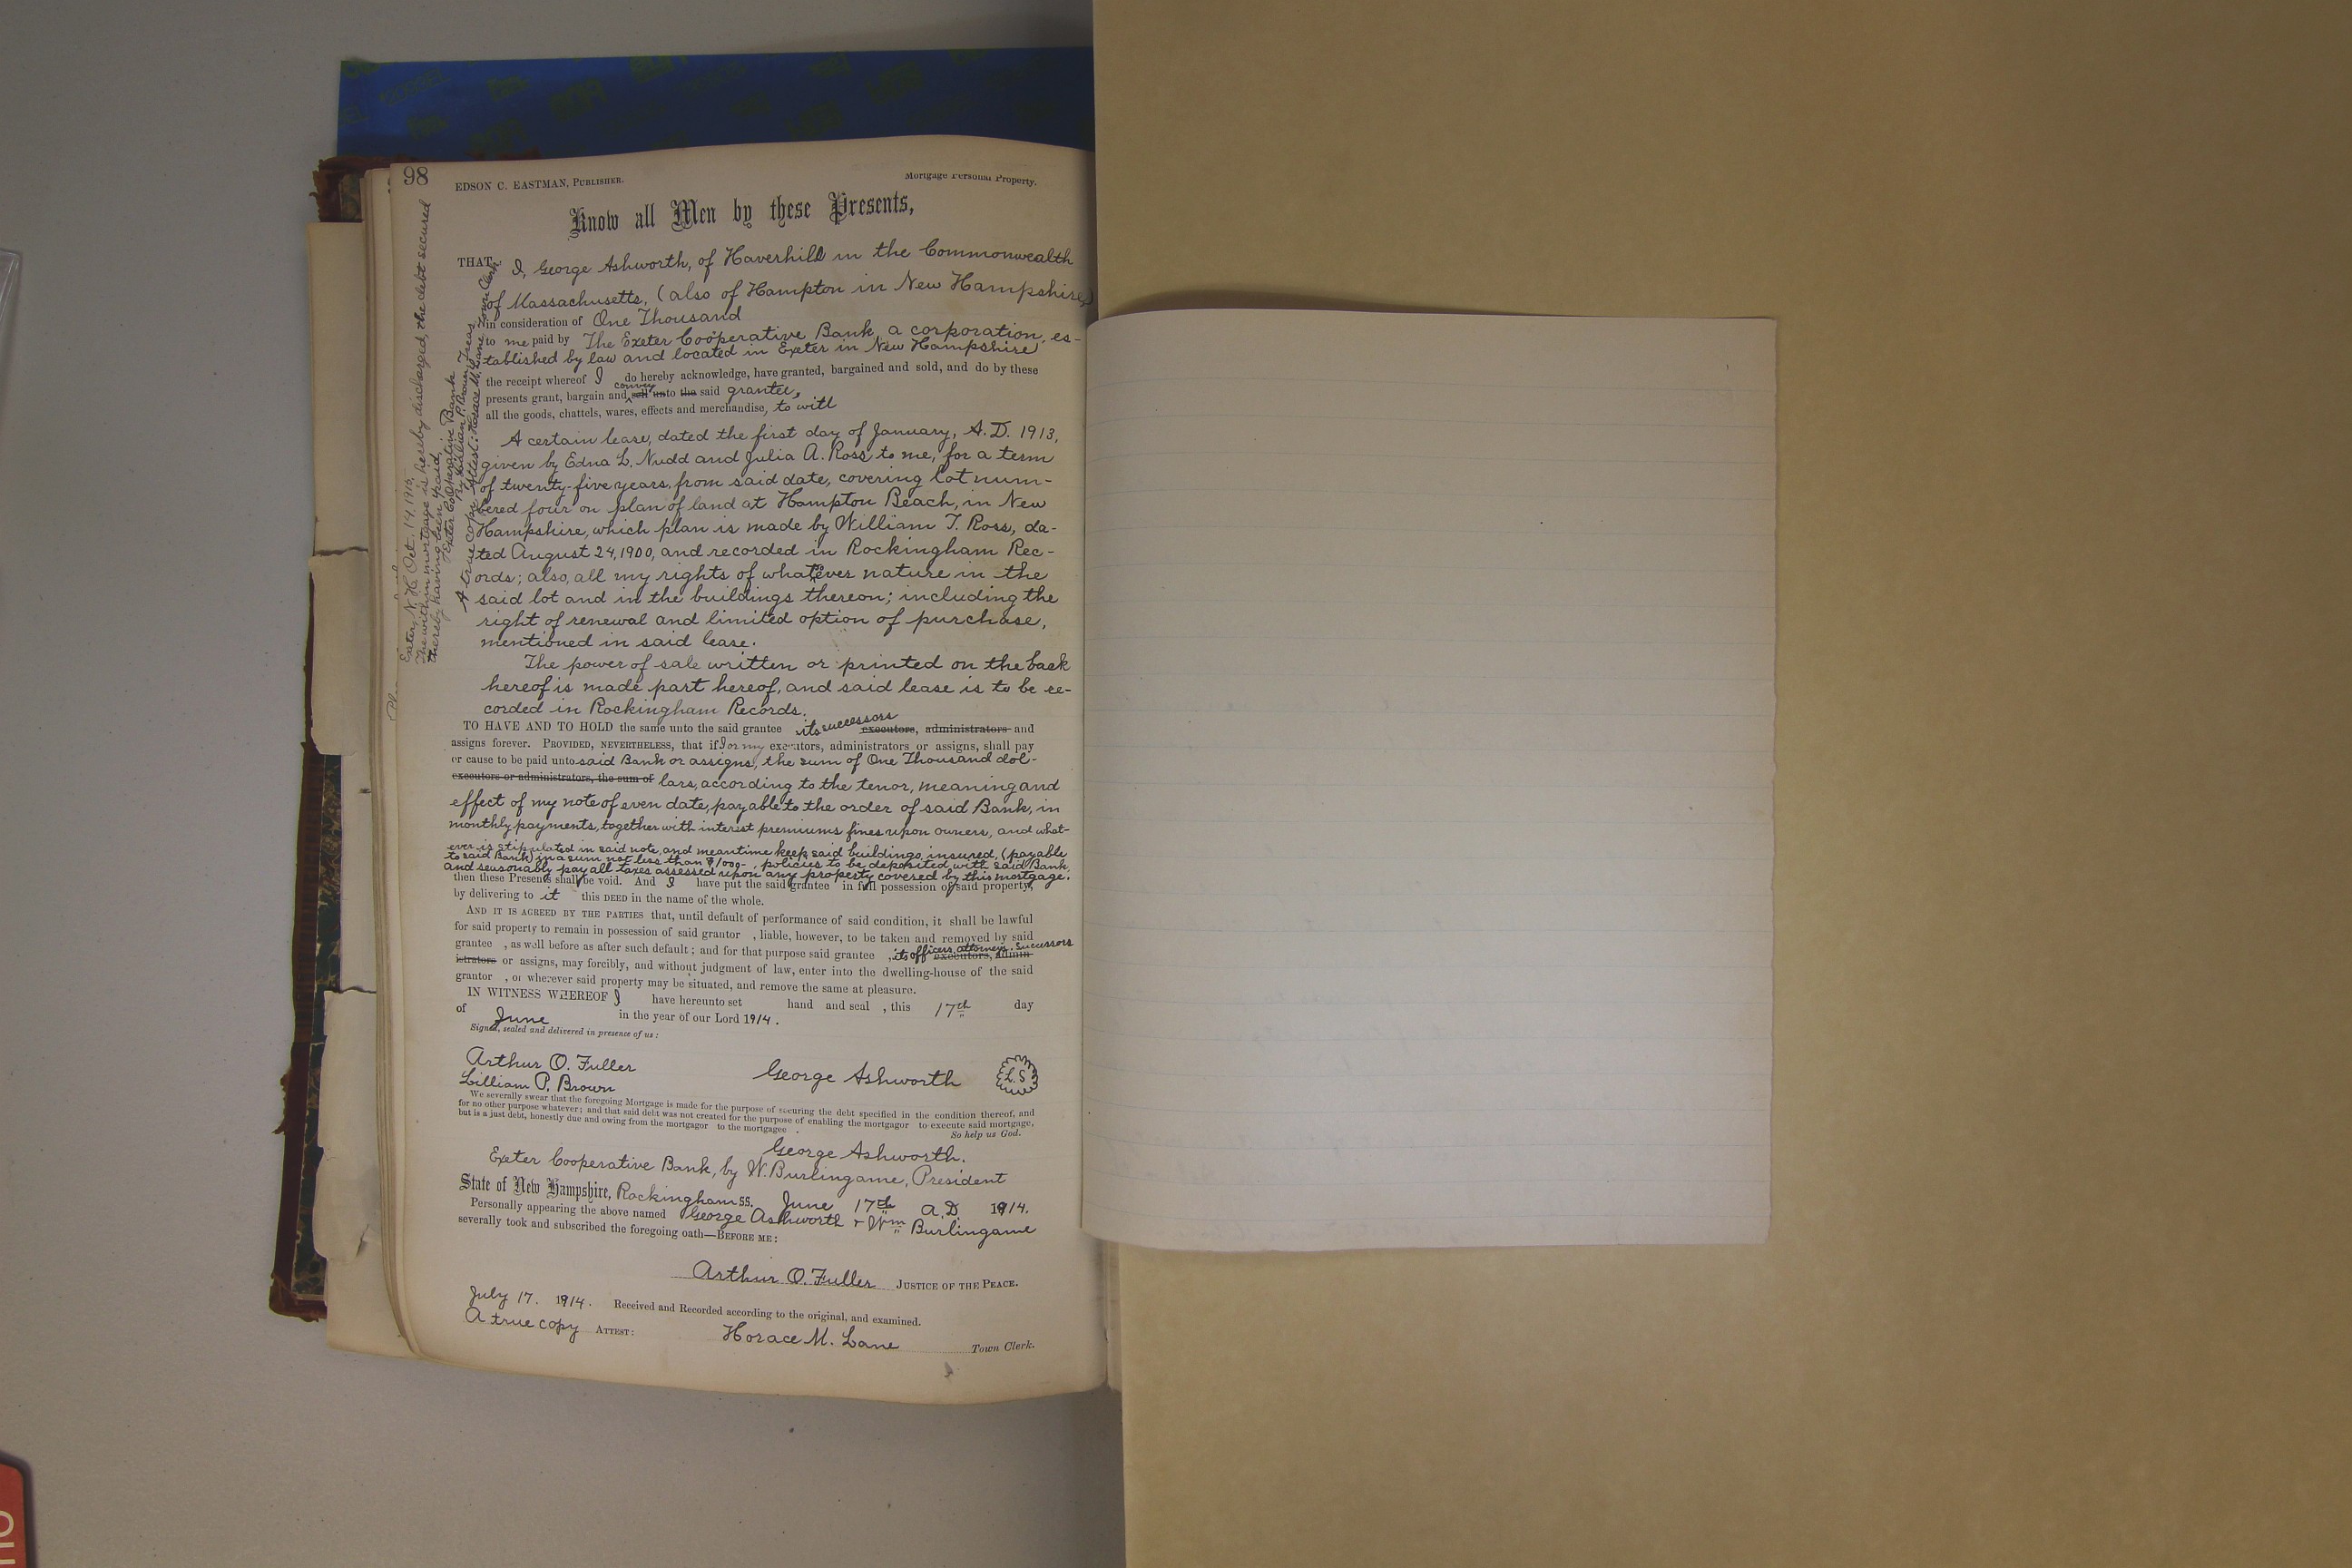 98
EDSON C. EASTMAN, PUBLISHER.
Mortgage Personal Property.
Know all Men by these Presents,
THAT, I, George Ashworth, of Haverhill in the Commonwealth
of Massachusetts, (also of Hampton in New Hampshire)
in consideration of One Thousand
to me paid by The Exeter Coöperative Bank, a corporation, es-
tablished by law and located in Exeter in New Hampshire
the receipt whereof I do hereby acknowledge, have granted, bargained and sold, and do by these
presents grant, bargain and convey sell unto the said grantee,
all the goods, chattels, wares, effects and merchandise, to wit
A certain lease, dated the first day of January, A.D. 1913,
given by Edna L. Nudd and Julia A. Ross to me, for a term
of twenty-five years, from said date, covering lot num-
bered four on plan of land at Hampton Beach, in New
Hampshire, which plan is made by William T. Ross, da-
ted August 24, 1900, and recorded in Rockingham Rec-
ords; also, all my rights of whatever nature in the
said lot and in the buildings thereon; including the
right of renewal and limited option of purchase,
mentioned in said lease.
The power of sale written or printed on the back
hereof is made part hereof, and said lease is to be re-
corded in Rockingham Records.
TO HAVE AND TO HOLD the same unto the said grantee its successors executors, administrators and
assigns forever. PROVIDED, NEVERTHELESS, that if I or my executors, administrators or assigns, shall pay
or cause to be paid unto said Bank or assigns, the sum of One Thousand dol-
executors or administrators, the sum of lars, according to the tenor, meaning and
effect of my note of even date, payable to the order of said Bank, in
monthly payments, together with interest premiums fines upon owners, and what-
ever is stipulated in said note, and meantime keep said buildings insured, (payable
to said Bank) in a sum not less than $1000-, policies to be deposited with said Bank,
and seasonably pay all taxes assessed upon any property covered by this mortgage.
then these Presents shall be void. And I have put the said grantee in full possession of said property,
by delivering to it this DEED in the name of the whole.
AND IT IS AGREED BY THE PARTIES that, until default of performance of said condition, it shall be lawful
for said property to remain in possession of said grantor , liable, however, to be taken and removed by said
grantee , as well before as after such default; and for that purpose said grantee , its officers, attorneys, successors executors, admin-
istrators or assigns, may forcibly, and without judgment of law, enter into the dwelling-house of the said
grantor , or wherever said property may be situated, and remove the same at pleasure.
IN WITNESS WHEREOF I have hereunto set hand and seal , this 17th day
of June in the year of our Lord 1914.
Signed, sealed and delivered in presence of us:
Arthur O. Fuller
Lillian P. Brown
George Ashworth L.S
We severally swear that the foregoing Mortgage is made for the purpose of securing the debt specified in the condition thereof, and
for no other purpose whatever; and that said debt was not created for the purpose of enabling the mortgagor to execute said mortgage,
but is a just debt, honestly due and owing from the mortgagor to the mortgagee .
So help us God.
George Ashworth.
Exeter Cooperative Bank, by W. Burlingame, President
State of New Hampshire, Rockingham SS. June 17th A.D. 1914.
Personally appearing the above named George Ashworth + Wm Burlingame
severally took and subscribed the foregoing oath—BEFORE ME:
Arthur O. Fuller JUSTICE OF THE PEACE.
July 17. 1914. Received and Recorded according to the original, and examined.
A true copy ATTEST: Horace M. Lane Town Clerk.
Exeter, N.H. Oct. 14, 1915.
The within mortgage is hereby discharged, the debt secured
thereby having been paid.
Exeter Coöperative Bank
By Lillian P. Brown, Treas.
A true copy Attest: Horace M. Lane Town Clerk